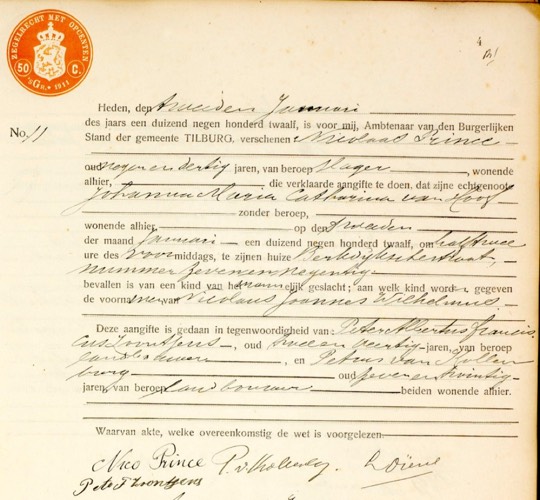 ZEGELRECHT MET OPCENTEN
50 C.
'SGR. 1911
No. 11
Heden, den tweeden Januari
des jaars een duizend negen honderd twaalf, is voor mij, Ambtenaar van den Burgerlijken
Stand der gemeente TILBURG, verschenen Nicolaas Prince
oud negenendertig jaren, van beroep slager, wonende
alhier, die verklaarde aangifte te doen, dat zijne echtgenoote
Johanna Maria Catharina van Hoof
zonder beroep,
wonende alhier, op den tweeden
der maand Januari een duizend negen honderd twaalf, om half twee
ure des voormiddags, te zijnen huize Berkdijkschestraat,
nummer zevenennegentig
bevallen is van een kind van het mannelijk geslacht; aan welk kind worden gegeven
de voornamen van Nicolaas Joannes Wilhelmus
Deze aangifte is gedaan in tegenwoordigheid van: Peter Albertus Francis
cus Trontjens, oud twee en veertig jaren, van beroep
landbouwer, en Petrus van Hollen
burg oud zeven en twintig
jaren, van beroep landbouwer beiden wonende alhier.
Waarvan akte, welke overeenkomstig de wet is voorgelezen.
Nico Prince